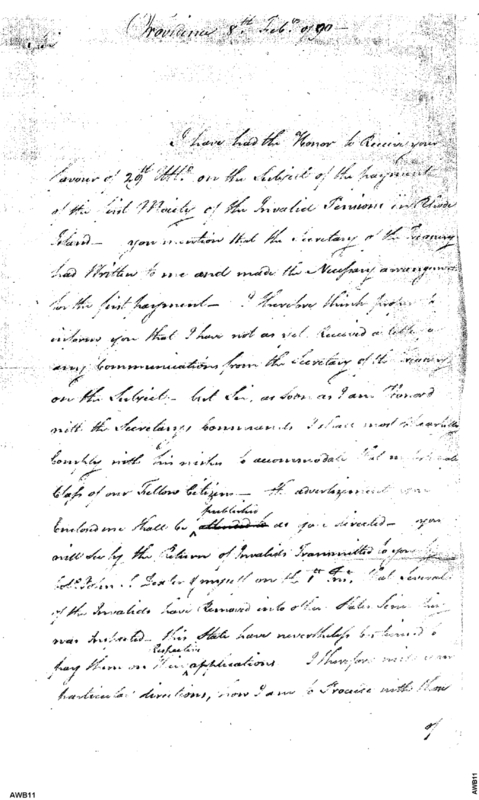 Providence 8th Feby 1790 —
Sir
I have had the Honor to Receive your
favour of 29th Ulto on the Subject of the payment
of the first Moiety of the Invalid Pensions in Rhode
Island — you mention that the Secretary of the Treasury
had Written to me and made the Necessary arrangements
for the first payment — I therefore think proper to
inform you that I have not as yet Received a letter, or
any Communications from the Secretary of the Treasury
on the Subject — but Sir, as soon as I am Honord
with the Secretarys Commands I shall most chearfully
Comply with his wishes to accommodate that
Class of our Fellow Citizens — the advertisement you
published
Enclosed me shall be attended to as you directed — you
will see by the Return of Invalids Transmitted to you by
Colo John S. Dexter & myself on the 1st Inst. that Several
of the Invalids have Removed into other States Since they
was Inspected — this State have nevertheless continued to
Respective
pay them on their applications I therefore wish your
particular directions, how I am to Procede with those
of
AWB11
AWB11